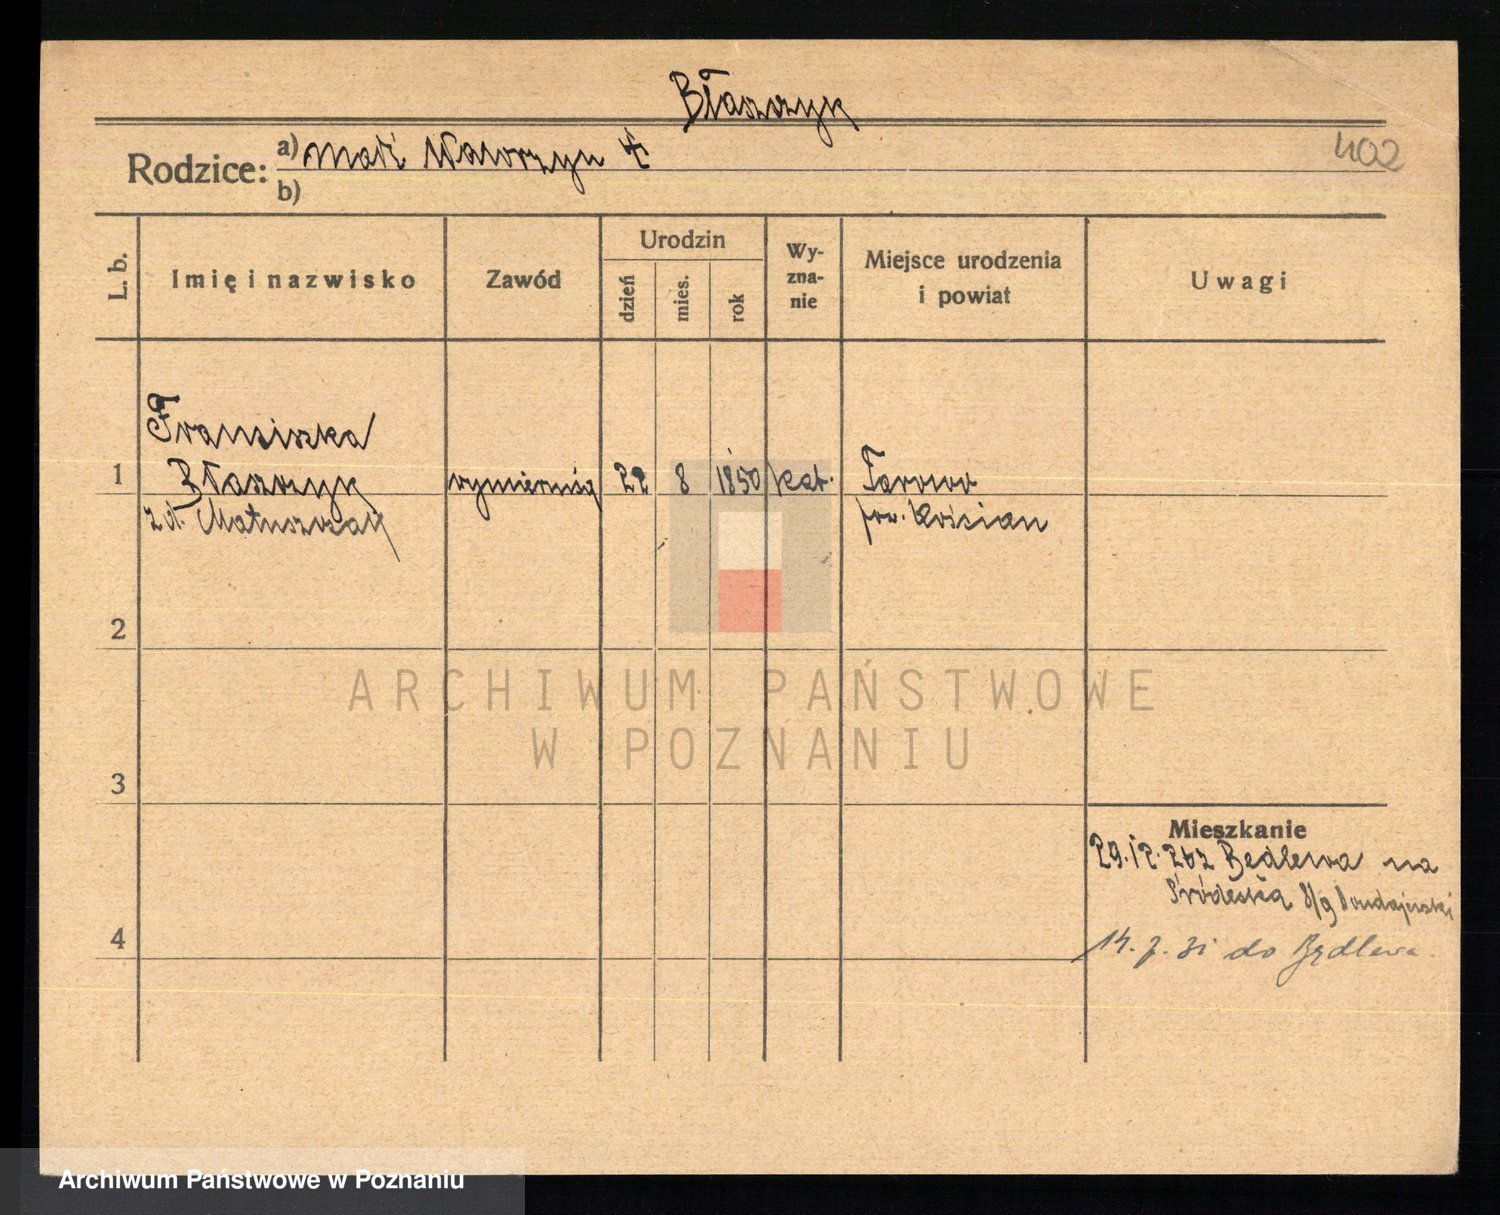 Błaszczyk
402
Rodzice: a) mąż Wawrzyn †
b)
L. b.
Imię i nazwisko
Zawód
Urodzin
dzień
mies.
rok
Wy-
zna-
nie
Miejsce urodzenia
i powiat
Uwagi
Franciszka
1 Błaszczyk 22 8 1850 kat.
z d. Matuszczak
pow. Kościan
2
3
4
Mieszkanie
29. 12. Będlewa na
Śródeckę 8/9
14. 7. 31 do Będlewa.
ARCHIWUM PAŃSTWOWE
W POZNANIU
Archiwum Państwowe w Poznaniu